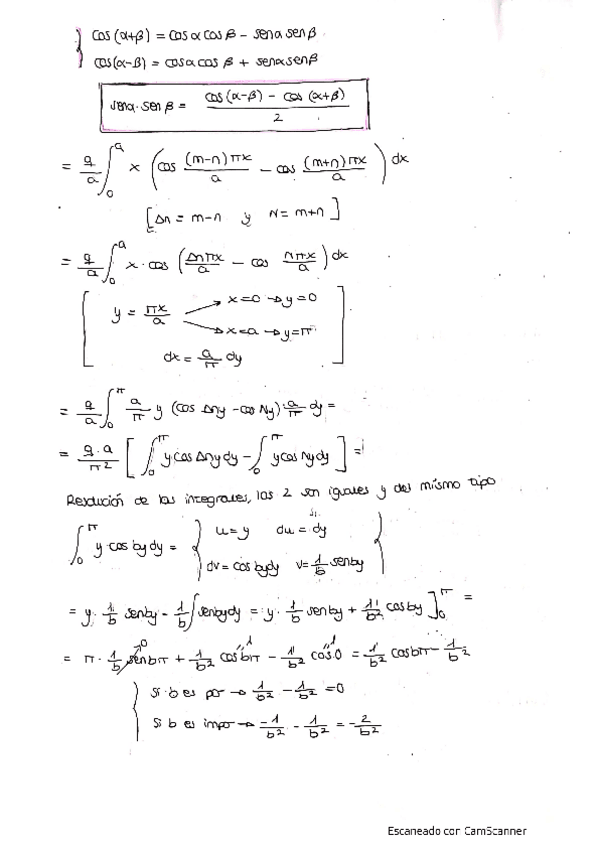 cos(α+β) = cosα cosβ - senα senβ
cos(α-β) = cosα cosβ + senα senβ
senα·senβ = (cos(α-β) - cos(α+β)) / 2
= q/a ∫₀ᵃ x (cos (m-n)πx/a - cos (m+n)πx/a) dx
[Δn = m-n y N = m+n]
= q/a ∫₀ᵃ x·cos (Δnπx/a - cos Nπx/a) dx
y = πx/a
x=0 → y=0
x=a → y=π
dx = a/π dy
= q/a ∫₀^π a/π y (cos Δny - cos Ny)·a/π dy =
= q·a/π² [∫₀^π y cos Δny dy - ∫₀^π y cos Ny dy] =
Resolución de las integrales, las 2 son iguales y del mismo tipo
∫₀^π y cos by dy = { u=y du = dy
dv = cos by dy v = 1/b sen by }
= y· 1/b sen by - 1/b ∫ sen by dy = y· 1/b sen by + 1/b² cos by ]₀^π =
= π· 1/b sen bπ + 1/b² cos bπ - 1/b² cos 0 = 1/b² cos bπ - 1/b²
Si b es par → 1/b² - 1/b² = 0
Si b es impar → -1/b² - 1/b² = -2/b²
Escaneado con CamScanner